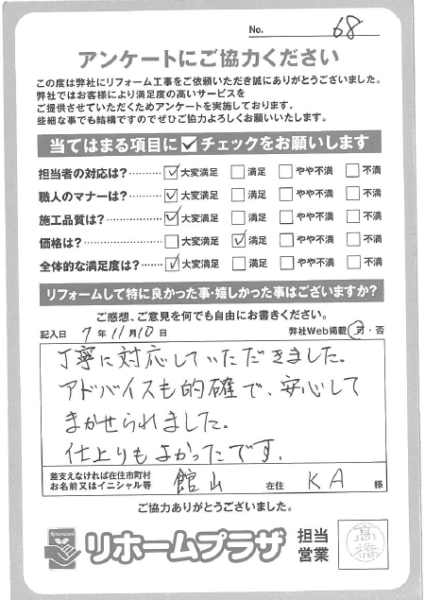 No. 68
アンケートにご協力ください
この度は弊社にリフォーム工事をご依頼いただき誠にありがとうございました。
弊社ではお客様により満足度の高いサービスを
ご提供させていただくためアンケートを実施しております。
些細な事でも結構ですのでぜひご協力よろしくお願いいたします。
当てはまる項目に✓チェックをお願いします
担当者の対応は?………… ☑大変満足 □満足 □やや不満 □不満
職人のマナーは?………… ☑大変満足 □満足 □やや不満 □不満
施工品質は?………… ☑大変満足 □満足 □やや不満 □不満
価格は?………… □大変満足 ☑満足 □やや不満 □不満
全体的な満足度は?…… ☑大変満足 □満足 □やや不満 □不満
リフォームして特に良かった事・嬉しかった事はございますか?
ご感想、ご意見を何でも自由にお書きください。
記入日 7年 11月 10日 弊社Web掲載 可・否
丁寧に対応していただきました。
アドバイスも的確で、安心して
まかせられました。
仕上りもよかったです。
差支えなければ在住市町村
お名前又はイニシャル等 館山 在住 KA 様
ご協力ありがとうございました。
リホームプラザ 担当
営業 高橋